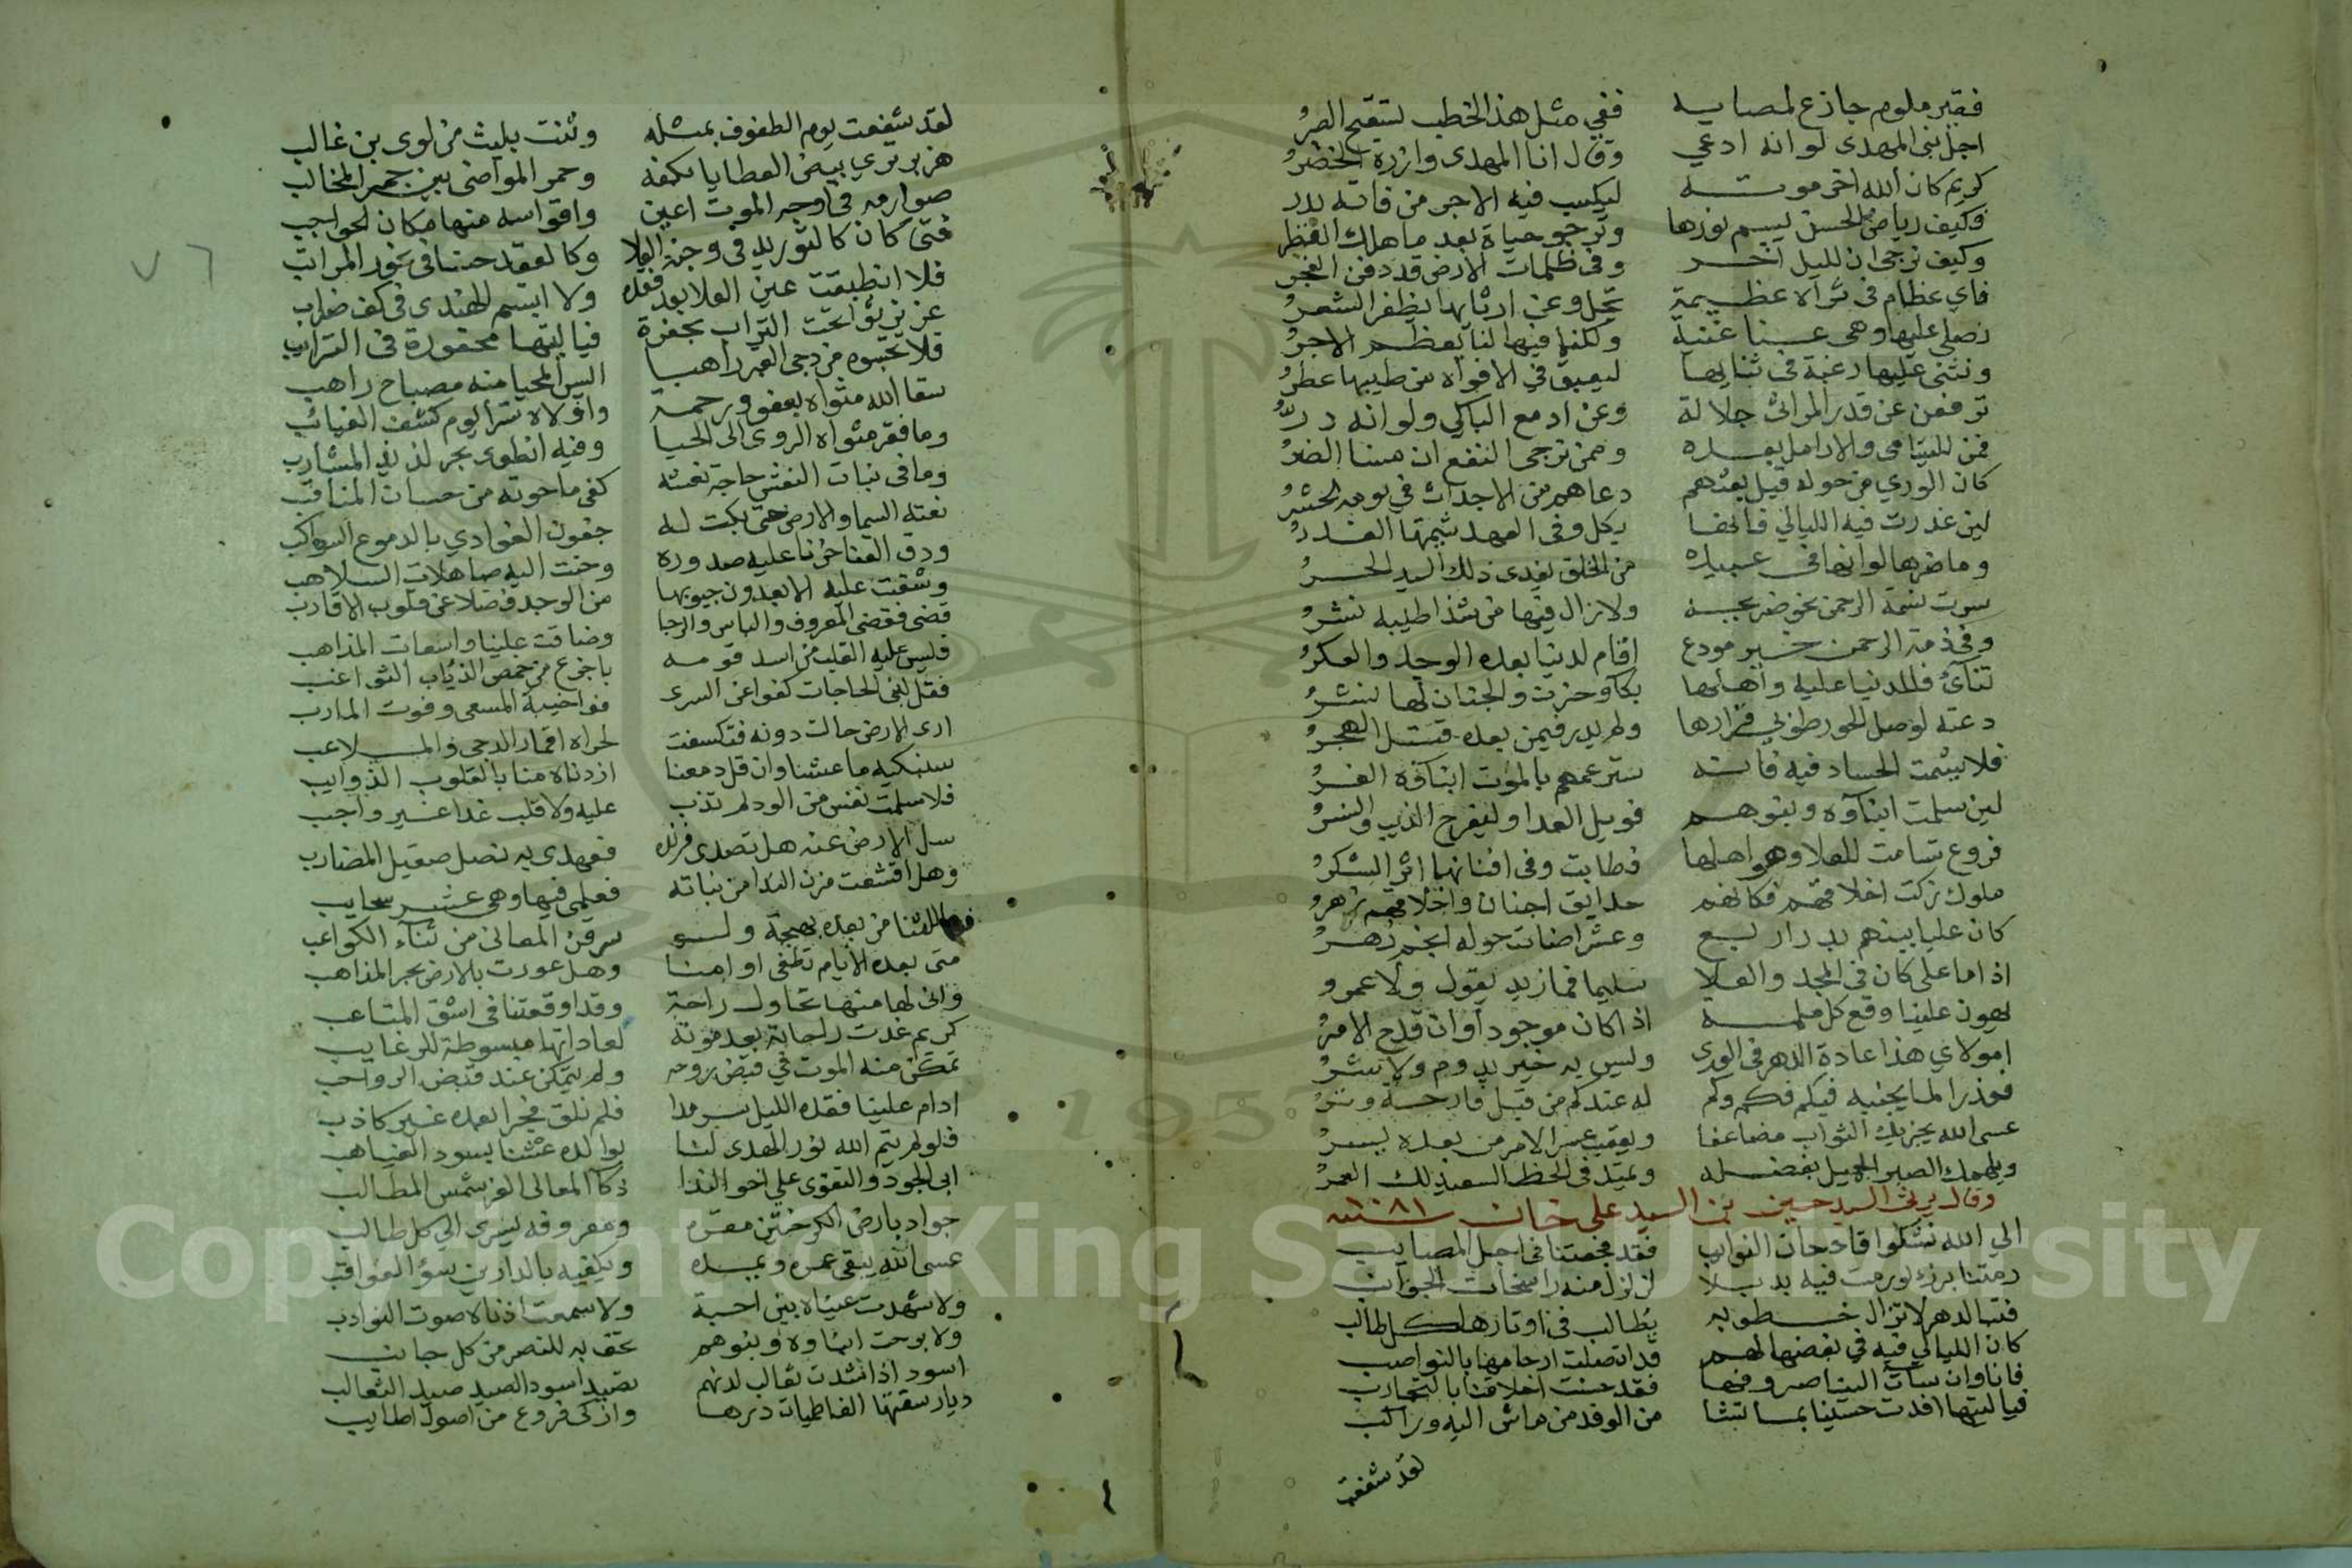 فغير ملوم جازع لمصابه ففي مثل هذا الخطب يستقبح الصبر
اجل بني المهدى لو انه ادعي وقال انا المهدى وازره الخضر
كريم كان الله اخر موته ليكسب فيه الاجر من فاته بدر
وكيف رياض الحسن يبسم نورها وترجو حياة بعد ما هلك القطر
وكيف نرجى ان لليل اخر وفى ظلمات الارض قد دفن الفجر
فاي عظام في ثراه عظيمة تجل وعن ارثايها يظفر الشعر
نصلي عليها وهى عنا غنية ولكننا فيها لنا يعظم الاجر
ونثنى عليها رغبة فى ثنايها ليعبق في الافواه من طيبها عطر
ترفعن عن قدر المراثى جلالة وعن ادمع الباكي ولو انه در
فمن لليتامى والارامل بعده وممن نرجى النفع ان مسنا الضر
كان الوري من حوله قبل بعثهم دعاهم من الاجداث في يومه الحشر
لين غدرت فيه الليالي فانها بكل وفى العهد شيمتها الغدر
وما ضرها لو انها فى عبيده من الخلق يفدى ذلك السيد الحر
سرت نسمة الرحمن نحو ضريحه ولا زال فيها من شذا طيبه نشر
وفى ذمة الرحمن خير مودع اقام لدينا بعده الوجد والفكر
تنآئ فللدنيا عليه واهلها بكا وحزن والجنان لها بشر
دعته لوصل الحور طوبي فزارها ولم يدر فيمن بعده قتل الهجر
فلا يشمت الحساد فيه فانه سترعمهم بالموت ابناؤه الغر
لين سلمت ابناؤه وبنوهم فويل العدا وليفرح الذيب والنسر
فروع تسامت للعلا وهو اصلها فطابت وفى افنانها اثر الشكر
ملوك زكت اخلاقهم فكانهم حدايق اجنان واخلاقهم زهر
كان عليا بينهم بدر اربع وعشر اضات حوله انجم زهر
اذا ما على كان فى المجد والعلا سليما فما زيد يقول ولا عمرو
يهون علينا وقع كل ملمة اذا كان موجودا وان فدح الامر
امولاي هذا عادة الدهر فى الورى وليس به خير يدوم ولا شر
فعذرا لما يجنيه فيكم فكم وكم له عندكم من قبل فادحة وتر
عسى الله يجزيك الثواب مضاعفا ويعقب عسر الامر من بعده يسر
ويلهمك الصبر الجميل بفضله ويمتد فى الحظ السعيد لك العمر
وقال يرثى السيد حسين بن السيد على خان سنة ١٠٨١
الي الله نشكوا فادحات النوايب فقد فجعتنا فى اجل المصايب
رمتنا برزء لو رمت فيه يذبلا لزلزل منه راسخات الجوانب
فتبا لدهر لا تزال خطوبه تطالب فى اوتارها كل طالب
كان الليالي فيه في بغضها لهم قد اتصلت ارحامها بالنواصب
فانا وان سات الينا صروفها فقد حسنت اخلاقنا بالتجارب
فيا ليتها افدت حسينا بما تشا من الوفد من ماش اليه وراكب
لقد شفعت
لقد شفعت يوم الطفوف بمثله وثنت بليث من لوى بن غالب
هزبر ترى بيض العطايا بكفه وحمر المواضى بين حمر المخالب
صوارمه فى اوجه الموت اعين واقواسه منها مكان الحواجب
فتى كان كالتوريد فى وجنة العلا وكالعقد حسنا فى نحور المراتب
فلا انطبقت عين العلا بعد فقده ولا ابتسم الهندى فى كف ضارب
عزيز ثوا تحت التراب بحفرة فيا ليتها محفورة فى الترايب
فلا تحسبوه من دجى القبر راهبا اليس المحيا منه مصباح راهب
سقا الله مثواه بعفو ورحمة واولاه سترا يوم كشف المعائب
وما فقر مثواه الروى الى الحيا وفيه انطوى بحر لذيذ المشارب
وما فى نبات النعش حاجة نعشه كفى ما حوته من حسان المناقب
نعته السما والارض حتى بكت له جفون الغوادي بالدموع السواكب
ودق القنا حزنا عليه صدوره وحنت اليه صاهلات السلاهب
وشقت عليه الابعدون جيوبها من الوجد فضلا عن قلوب الاقارب
قضى فقضى المعروف والباس والرجا وضاقت علينا واسعات المذاهب
فليس عليه القلب من اسد قومه باجزع من خمص الذياب السواغب
فقل لبنى الحاجات كفوا عن السرى فوا خيبة المسعى وفوت المارب
ارى الارض حالت دونه فتكسفت لحراه اقمار الدجى والملاعب
سنبكيه ما عشنا وان قل دمعنا ازدناه منا بالقلوب الذوايب
فلا سلمت نفس من الود لم تذب عليه ولا قلب غدا غير واجب
سل الارض عنه هل تصدى فرنده فعهدى به نصل صقيل المضارب
وهل اقشعت مزن الندا من بنانه فعلمى فيها وهى عشر سحايب
للثنا من بعده بهجة ولو سرقن المعانى من ثناء الكواعب
متى بعده الايام تطفى اوامنا وهل عورت بالارض بحر المذاهب
وانى لها منها تحاول راحة وقد اوقعتنا فى اشق المتاعب
كريم غدت راحاته بعد موته لعاداتها مبسوطة للرغايب
تمكن منه الموت في قبض روحه ولم يتمكن عند قبض الرواجب
ادام علينا فقده الليل سرمدا فلم نلق فجرا بعده غير كاذب
فلو لم يتم الله نور الهدى لنا بوالده عشنا بسود الغياهب
ابى الجود والتقوى علي اخو الندا ذكآ المعالى الغر شمس المطالب
جواد بارض الكرختين مقره ومعروفه يسرى الى كل طالب
عسى الله يبقى عمره ويمده ويكفيه بالدارين سؤ العواقب
ولا شهدت عيناه بين احبة ولا سمعت اذناه صوت النوادب
ولا برحت ابناؤه وبنوهم تحف به للنصر من كل جانب
اسود اذا شدت ثعالب لدنهم تصيد اسود الصيد صيد الثعالب
ديار سقتها الفاطميات درها وازكى فروع من اصول اطايب